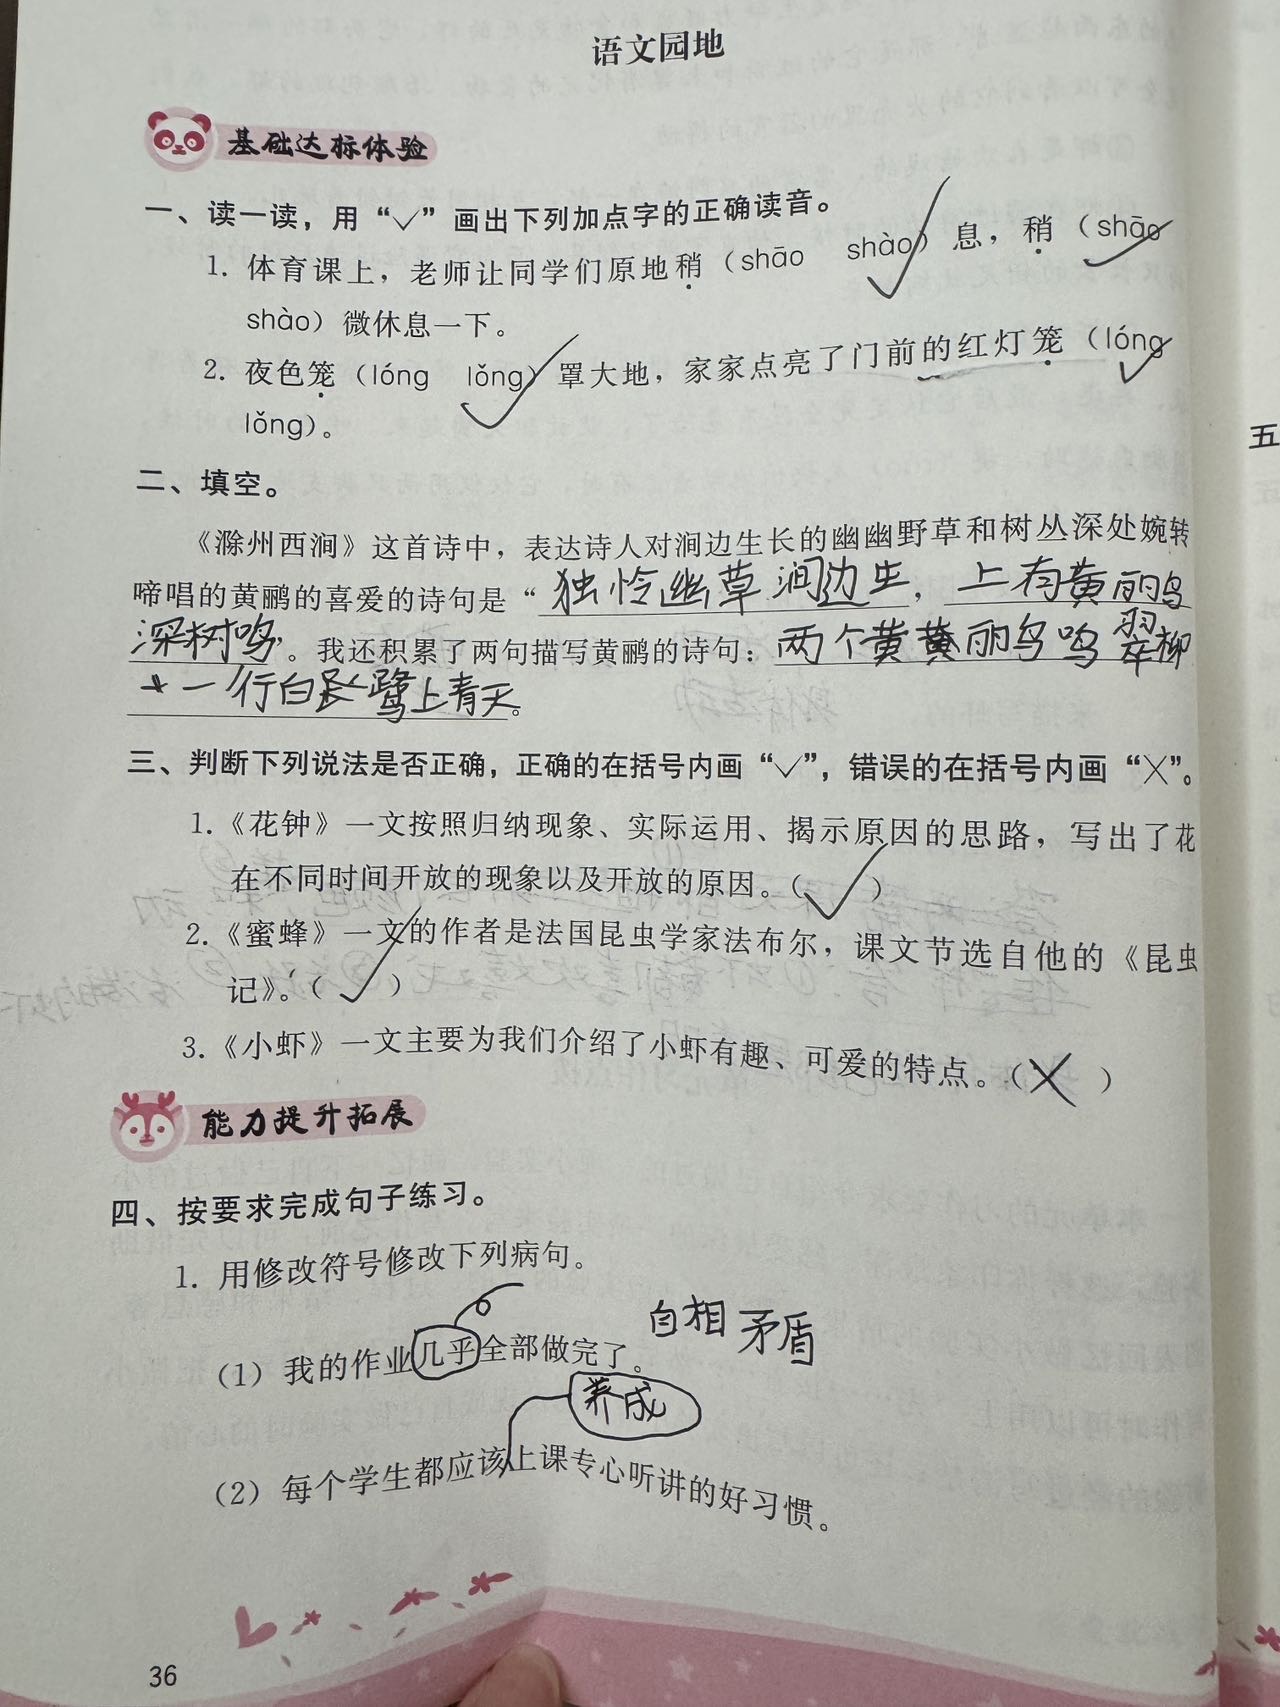 语文园地
基础达标体验
一、读一读，用“√”画出下列加点字的正确读音。
1. 体育课上，老师让同学们原地稍（shāo shào）息，稍（shāo
shào）微休息一下。
2. 夜色笼（lóng lǒng）罩大地，家家点亮了门前的红灯笼（lóng
lǒng）。
二、填空。
《滁州西涧》这首诗中，表达诗人对涧边生长的幽幽野草和树丛深处婉转
啼唱的黄鹂的喜爱的诗句是“独怜幽草涧边生，上有黄鹂
深树鸣。我还积累了两句描写黄鹂的诗句：两个黄黄鹂鸣翠柳
一行白鹭上青天。
三、判断下列说法是否正确，正确的在括号内画“√”，错误的在括号内画“×”。
1.《花钟》一文按照归纳现象、实际运用、揭示原因的思路，写出了花
在不同时间开放的现象以及开放的原因。（√）
2.《蜜蜂》一文的作者是法国昆虫学家法布尔，课文节选自他的《昆虫
记》。（√）
3.《小虾》一文主要为我们介绍了小虾有趣、可爱的特点。（×）
能力提升拓展
四、按要求完成句子练习。
1. 用修改符号修改下列病句。
（1）我的作业几乎全部做完了。 自相矛盾
养成
（2）每个学生都应该上课专心听讲的好习惯。
36
五